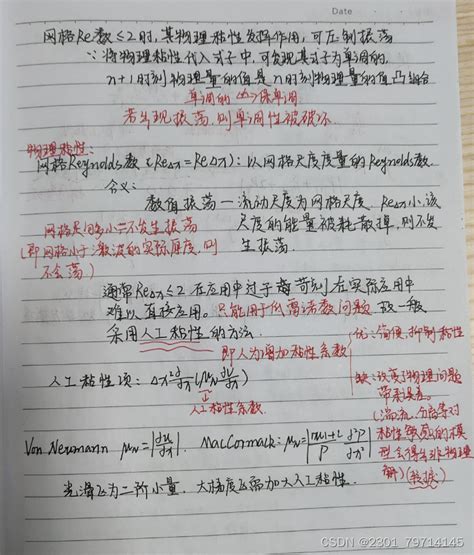 Date
网格Re数≤2时,其物理粘性发挥作用,可压制振荡
∵将物理粘性代入式子中,可发现其式子为单调的.
n+1时刻物理量的值是n时刻物理量的值凸组合
单调的 ⇔ 保单调
若出现振荡,则单调性被破坏
物理粘性:
网格Reynolds数(ReΔx=ReΔx):以网格尺度度量的Reynolds数.
含义:
数值振荡—流动尺度为网格尺度,ReΔx小,该
尺度的能量被耗散掉,则不发
生振荡.
网格足够小⇒不发生振荡
(即网格小于激波的实际厚度,则
不会荡)
通常ReΔx≤2在应用中过于苛刻,在实际应用中
难以直接应用.只能用于低雷诺数问题 故一般
采用人工粘性的方法.
即人为增加粘性系数
优:简便,抑制粘性
缺:改变了物理问题
带来误差.
(湍流,分离等对
粘性敏感的模
型会得出非物理
解)(数据)
人工粘性项:Δx² d/dx(μN du/dx)
人工粘性系数
Von Neumann μN=|du/dx|. MacCormack:μN=|u|+c/P |d²P/dx²|
光滑区为二阶小量.大梯度区需加大人工粘性.
CSDN @2301_79714145